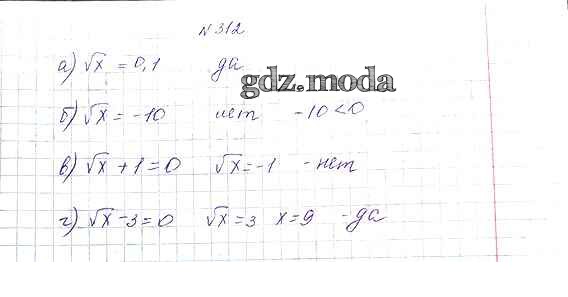 № 312
а) √x = 0,1 да
gdz.moda
б) √x = -10 нет -10<0
в) √x +1=0 √x=-1 - нет
г) √x -3=0 √x=3 x=9 -да